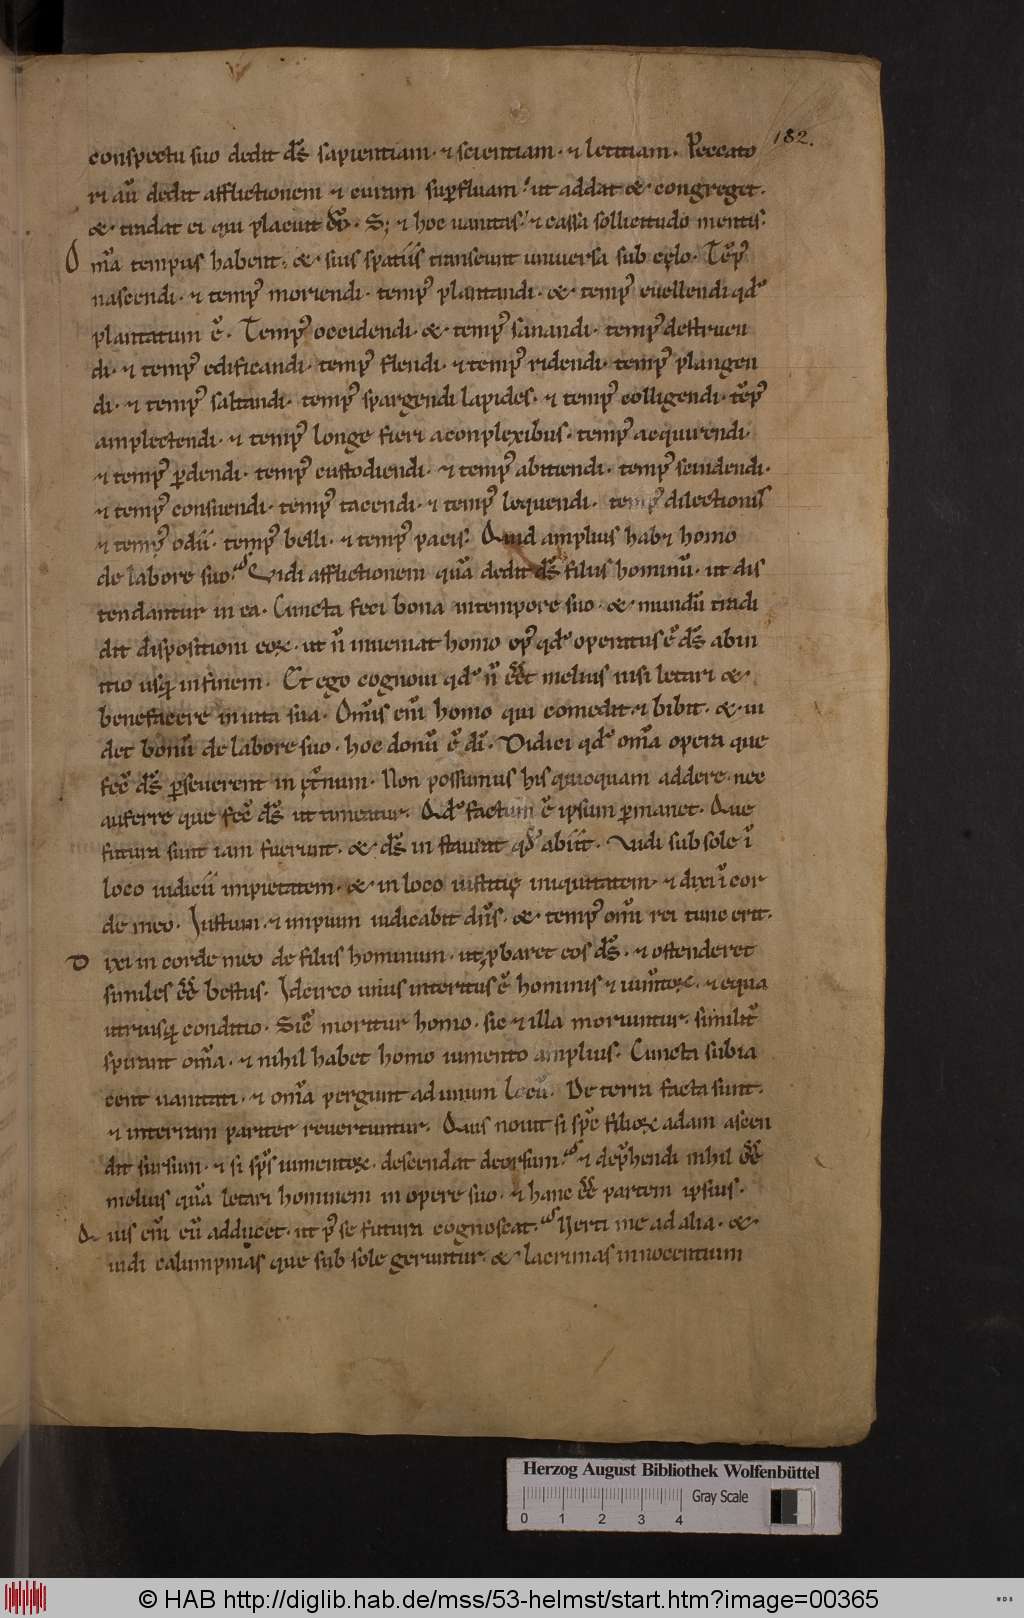 182.
conspectu suo dedit d̄s sapientiam · ⁊ scientiam · ⁊ letitiam. Peccato
ri aū dedit afflictionem ⁊ curam sup̄fluam · ut addat & congreget ·
& tradat ei qui placuit dō · S; ⁊ hoc uanitas · ⁊ cassa sollicitudo mentis ·
Om̄a tempus habent · & suis spatiis transeunt uniuersa sub cęlo · Tēpꝰ
nascendi · ⁊ tempꝰ moriendi · tempꝰ plantandi · & tempꝰ euellendi qd̄
plantatum ē · Tempꝰ occidendi · & tempꝰ sanandi · tempꝰ destruen
di · ⁊ tempꝰ edificandi · tempꝰ flendi · ⁊ tempꝰ ridendi · tempꝰ plangen
di · ⁊ tempꝰ saltandi · tempꝰ spargendi lapides · ⁊ tempꝰ colligendi · tēpꝰ
amplectendi · ⁊ tempꝰ longe fieri a conplexibus · tempꝰ acquirendi ·
⁊ tempꝰ ꝑdendi · tempꝰ custodiendi · ⁊ tempꝰ abitiendi · tempꝰ scindendi ·
⁊ tempꝰ consuendi · tempꝰ tacendi · ⁊ tempꝰ lequendi · tempꝰ dilectionis
⁊ tempꝰ odii · tempꝰ belli · ⁊ tempꝰ pacis · Quid amplius hab& homo
de labore suo? Vidi afflictionem quā dedit d̄s filiis hominū · ut dis
tendantur in ea · Cuncta feci bona in tempore suo · & mundū tradi
dit dispositioni eoꝝ · ut n̄ inueniat homo opꝰ qd̄ operatus ē d̄s ab ini
tio usq; in finem · Et ego cognoui qd̄ n̄ eēt melius nisi letari &
benefacere in uita sua · Om̄is em̄ homo qui comedit ⁊ bibit · & ui
det bonū de labore suo · hoc donū ē dī · Didici qd̄ om̄a opera que
fec̄ d̄s ꝑseuerent in ęt̄num · Non possumus his quicquam addere · nec
auferre que fec̄ d̄s ut timeatur · Qd̄ factum ē ipsum ꝑmanet · Que
futura sunt iam fuerunt · & d̄s instaurat qd̄ abiit · Vidi sub sole ī
loco iudicii impietatem · & in loco iustitię iniquitatem · ⁊ dixi ī cor
de meo · Iustum · ⁊ impium iudicabit dn̄s · & tempꝰ om̄i rei tunc erit ·
Dixi in corde meo de filiis hominum · ut ꝓbaret eos d̄s · ⁊ ostenderet
similes eē bestiis · Idcirco unus interitus ē hominis ⁊ ium̄toꝝ · ⁊ equa
utriusq; conditio · Sic̄ moritur homo · sic ⁊ illa moriuntur · similit̄
spirant om̄a · ⁊ nihil habet homo iumento amplius · Cuncta subia
cent uanitati · ⁊ om̄a pergunt ad unum locū · De terra facta sunt ·
⁊ in terram pariter reuertuntur · Quis nouit si sp̄c filioꝝ adam ascen
dit sursum · ⁊ si sp̄s iumentoꝝ · descendat deorsum? ⁊ dep̄hendi nihil eē
melius quā letari hominem in opere suo · ⁊ hanc eē partem ipsius ·
Quis em̄ eū adducet · ut p̄ se futura cognoscat? Verti me ad alia · &
uidi calumpnias que sub sole geruntur · & lacrimas innocentium
Herzog August Bibliothek Wolfenbüttel
Gray Scale
0 1 2 3 4
© HAB http://diglib.hab.de/mss/53-helmst/start.htm?image=00365